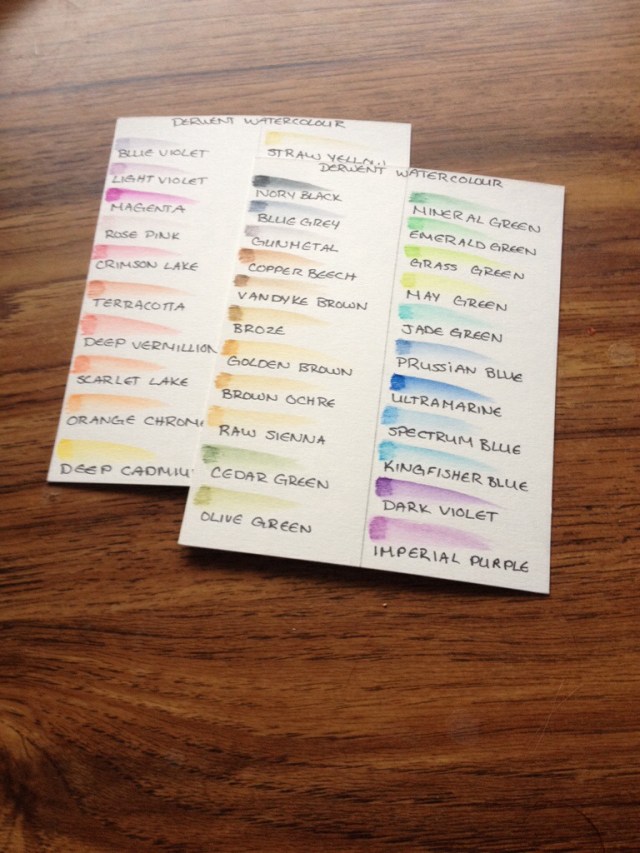 DERWENT WATERCOLOUR
BLUE VIOLET
LIGHT VIOLET
MAGENTA
ROSE PINK
CRIMSON LAKE
TERRACOTTA
DEEP VERMILLION
SCARLET LAKE
ORANGE CHROM
DEEP CADMIU
STRAW YELL
DERWENT WATERCOLOUR
IVORY BLACK
BLUE GREY
GUNMETAL
COPPER BEECH
VANDYKE BROWN
BROZE
GOLDEN BROWN
BROWN OCHRE
RAW SIENNA
CEDAR GREEN
OLIVE GREEN
MINERAL GREEN
EMERALD GREEN
GRASS GREEN
MAY GREEN
JADE GREEN
PRUSSIAN BLUE
ULTRAMARINE
SPECTRUM BLUE
KINGFISHER BLUE
DARK VIOLET
IMPERIAL PURPLE